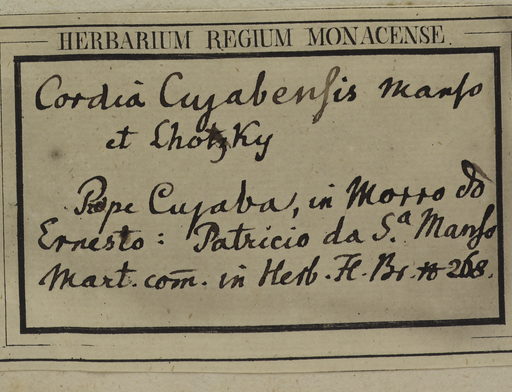 HERBARIUM REGIUM MONACENSE
Cordia Cujabensis Manso
et Lhotzky
Prope Cujaba, in Morro do
Ernesto: Patricio da S.ª Manso
Mart. com. in Herb. Fl. Br. n 268.